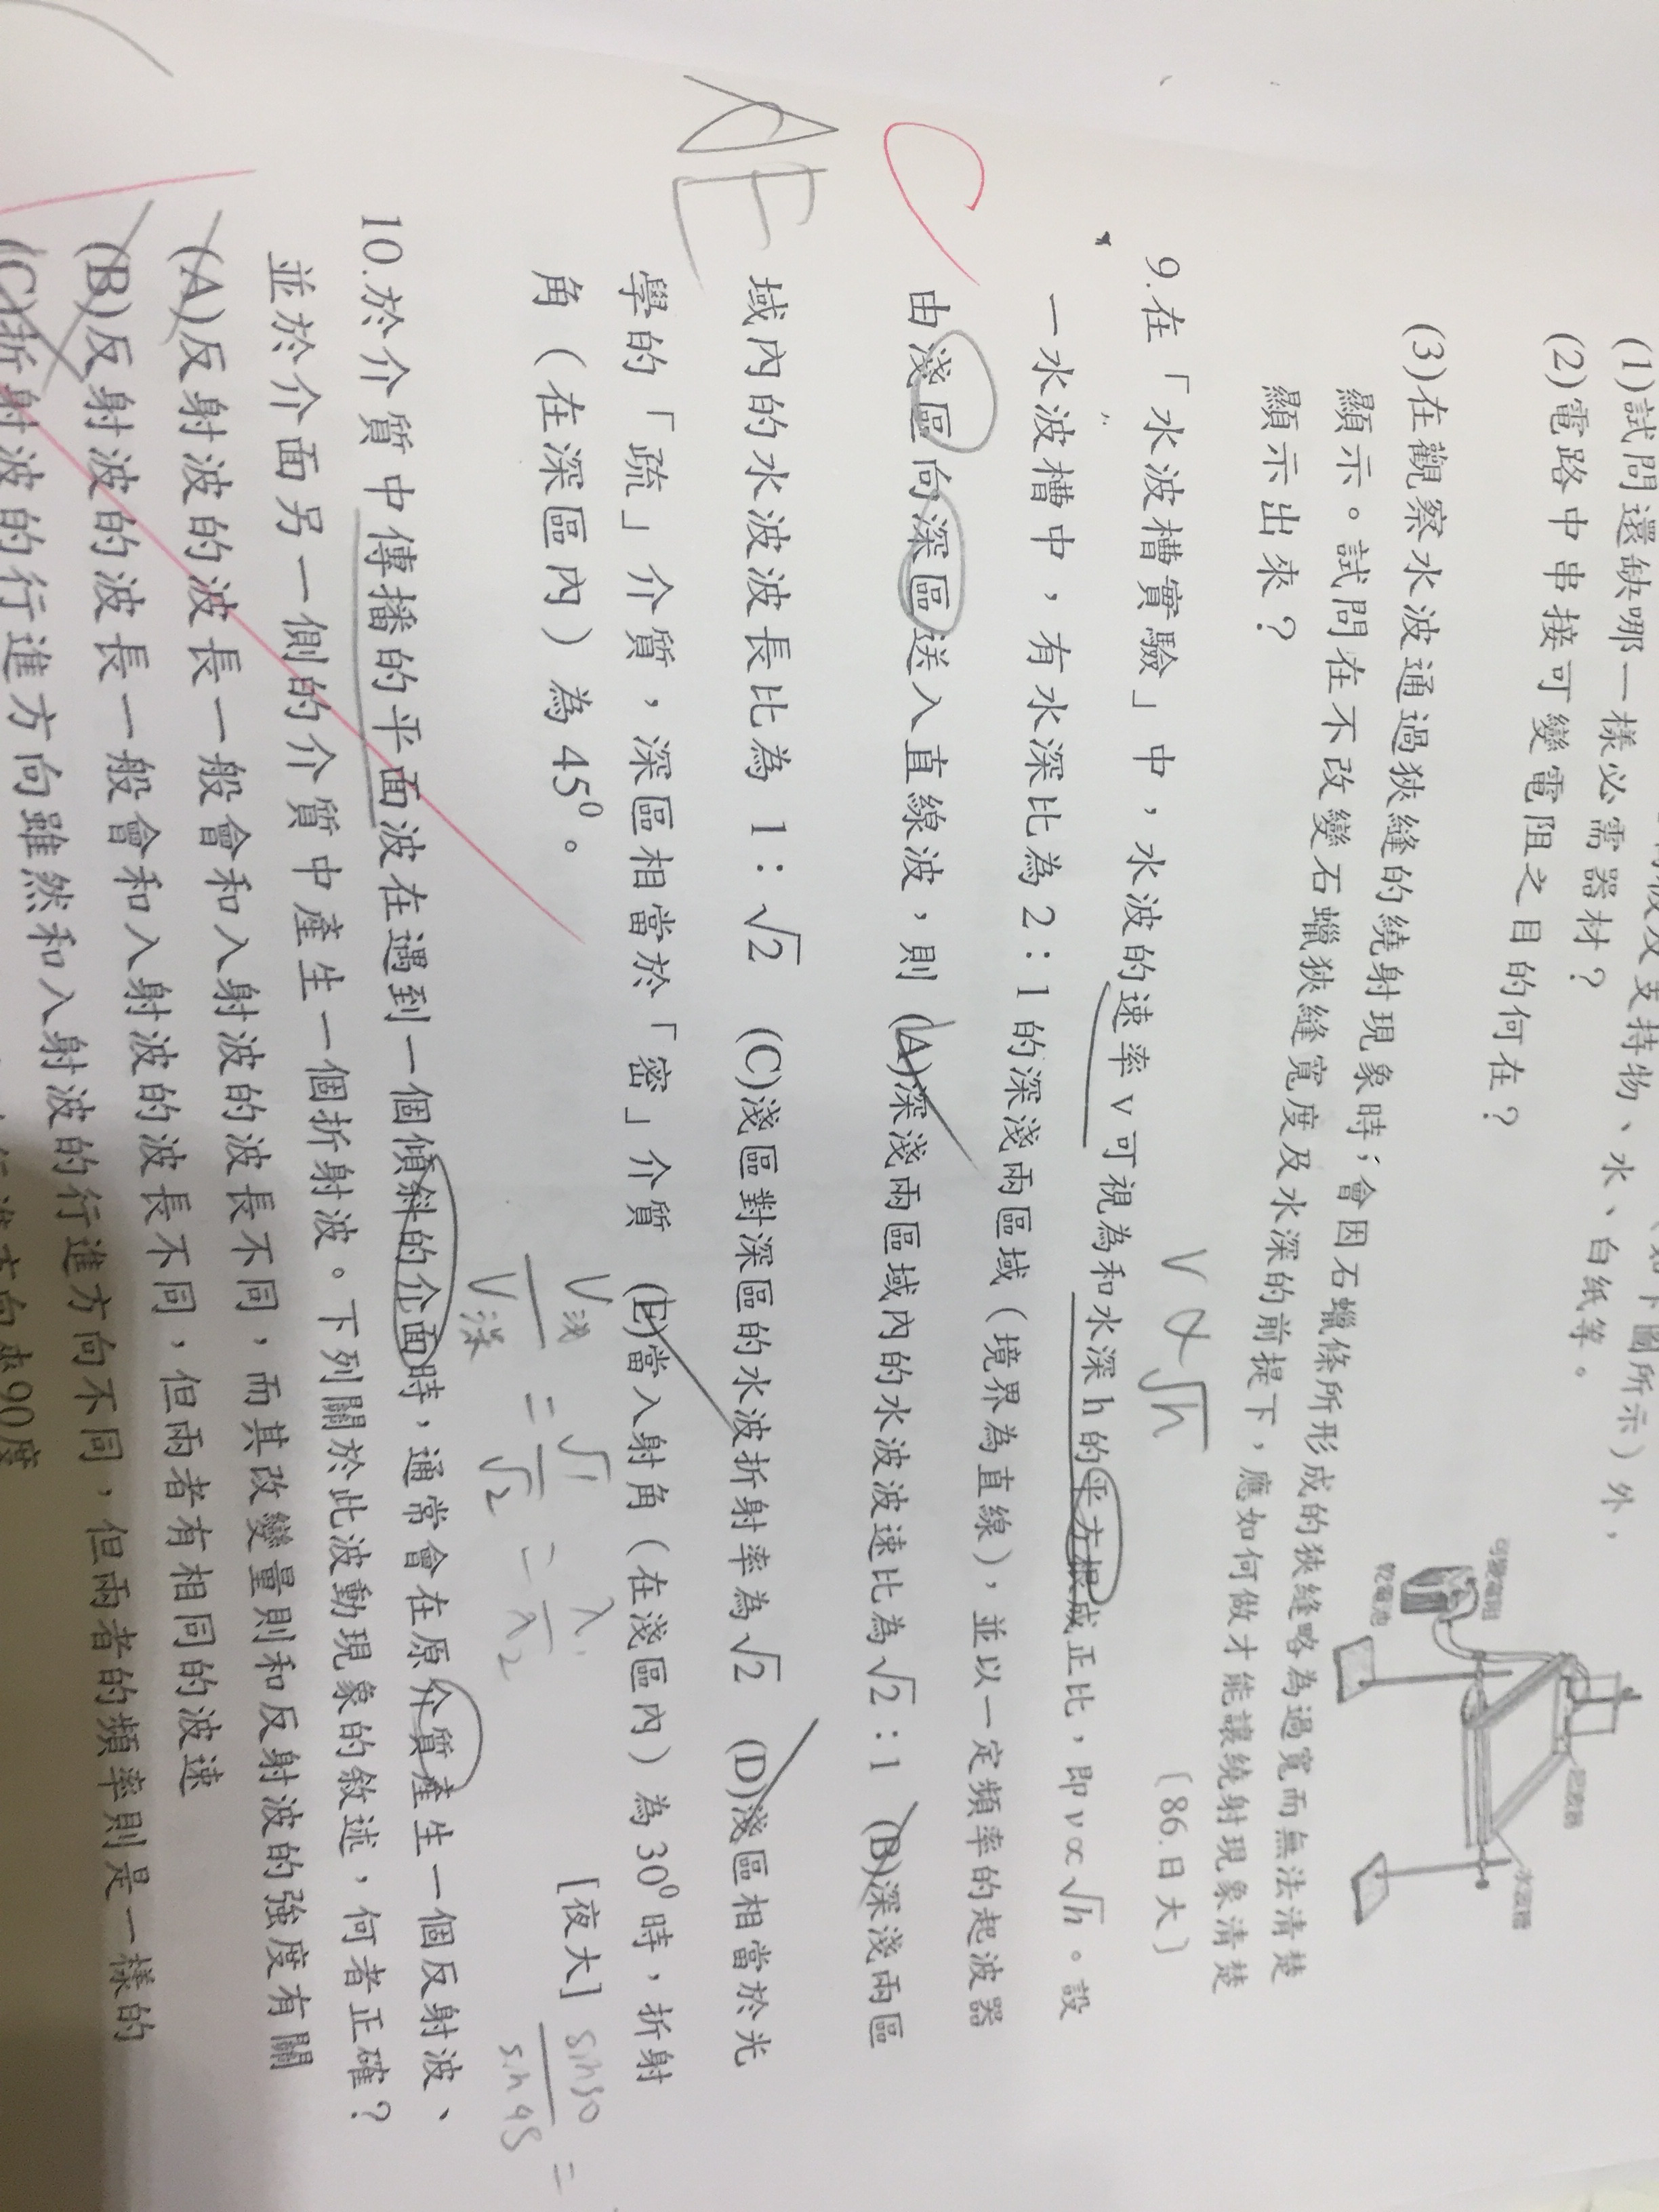 (1)試問還缺哪一樣必需器材？
(2)電路中串接可變電阻之目的何在？
(3)在觀察水波通過狹縫的繞射現象時，會因石蠟條所形成的狹縫略為過寬而無法清楚
顯示。試問在不改變石蠟狹縫寬度及水深的前提下，應如何做才能讓繞射現象清楚
顯示出來？
〔86.日大〕
可變電阻
乾電池
起波器
水波槽
V ∝ √h
9.在「水波槽實驗」中，水波的速率v可視為和水深h的平方根成正比，即v∝√h。設
一水波槽中，有水深比為2：1的深淺兩區域（境界為直線），並以一定頻率的起波器
由淺區向深區送入直線波，則 (A)深淺兩區域內的水波波速比為√2：1 (B)深淺兩區
域內的水波波長比為 1：√2 (C)淺區對深區的水波折射率為√2 (D)淺區相當於光
學的「疏」介質，深區相當於「密」介質 (E)當入射角（在淺區內）為30⁰時，折射
角（在深區內）為45⁰。
[夜大]
AE
V淺/V深 = √1/√2 = λ1/λ2
sin30/sin45 =
10.於介質中傳播的平面波在遇到一個傾斜的介面時，通常會在原介質產生一個反射波、
並於介面另一側的介質中產生一個折射波。下列關於此波動現象的敘述，何者正確？
(A)反射波的波長一般會和入射波的波長不同，而其改變量則和反射波的強度有關
(B)反射波的波長一般會和入射波的波長不同，但兩者有相同的波速
(C)折射波的行進方向雖然和入射波的行進方向不同，但兩者的頻率則是一樣的